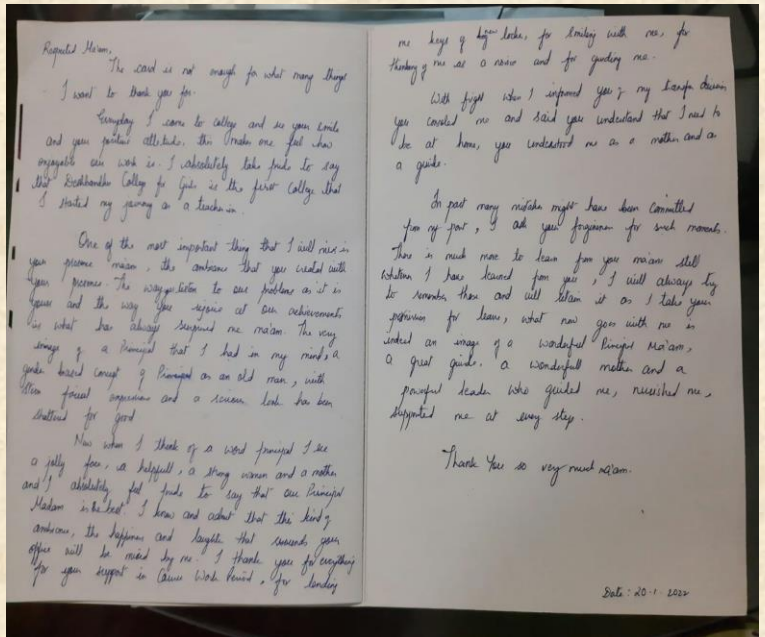 Respected Ma'am,
The card is not enough for what many things
I want to thank you for.
Everyday I come to college and see your smile
and your positive attitude, this makes one feel how
enjoyable our work is. I absolutely take pride to say
that Deshbandhu College for Girls is the first College that
I started my journey as a teacher in.
One of the most important thing that I will miss is
your presence ma'am, the ambiance that you created with
your presence. The way you listen to our problems as it is
yours and the way you rejoice at our achievements
is what has always surprised me ma'am. The very
image of a Principal that I had in my mind, a
gender based concept of Principal as an old man, with
stern facial expressions and a serious look has been
shattered for good
Now when I think of a word principal I see
a jolly face, a helpfull, a strong women and a mother
and I absolutely feel pride to say that our Principal
Madam is the best. I know and admit that this kind of
ambiance, the happiness and laughter that surrounds your
office will be missed by me. I thank you for everything
for your support in Course Work Period, for lending
me keys of new locks, for smiling with me, for
thinking of me as a and for guiding me.
With fright when I informed you of my transfer decision
you consoled me and said you understand that I need to
be at home, you understood me as a mother and as
a guide.
In part many mistakes might have been committed
from my part, I ask your forgiveness for such moments.
There is much more to learn from you ma'am still
whatever I have learned from you, I will always try
to remember those and will retain it as I take your
permission for leave, what now goes with me is
indeed an image of a wonderful Principal Ma'am,
a great guide, a wonderfull mother and a
powerful leader who guided me, nourished me,
supported me at every step.
Thank You so very much ma'am.
Date: 20.1.2022